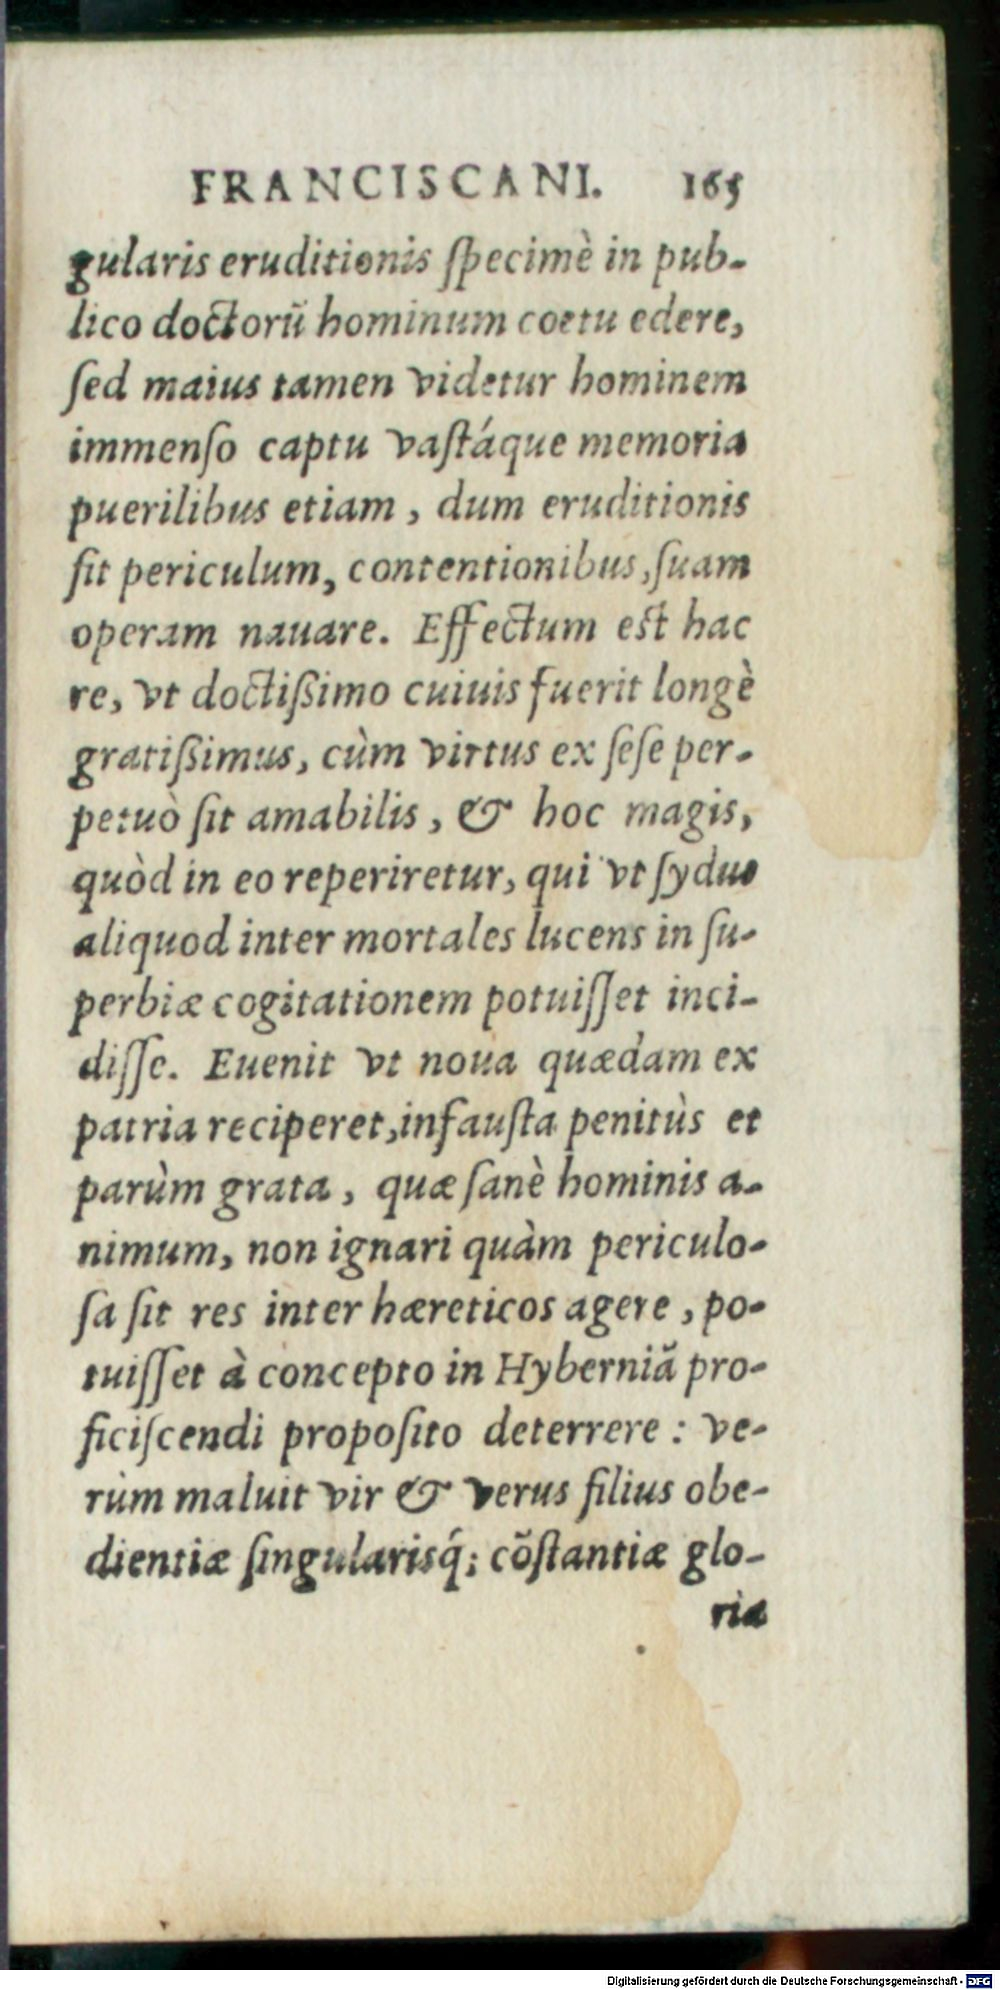 FRANCISCANI. 165
gularis eruditionis ſpecimè in pub-
lico doctorũ hominum coetu edere,
ſed maius tamen videtur hominem
immenſo captu vaſtáque memoria
puerilibus etiam, dum eruditionis
ſit periculum, contentionibus, ſuam
operam nauare. Effectum est hac
re, vt doctißimo cuiuis fuerit longè
gratißimus, cùm virtus ex ſeſe per-
petuò ſit amabilis, & hoc magis,
quòd in eo reperiretur, qui vt ſydus
aliquod inter mortales lucens in ſu-
perbiæ cogitationem potuiſſet inci-
diſſe. Euenit vt noua quædam ex
patria reciperet, infauſta penitùs et
parùm grata, quæ ſanè hominis a-
nimum, non ignari quàm periculo-
ſa ſit res inter hæreticos agere, po-
tuiſſet à concepto in Hyberniã pro-
ficiſcendi propoſito deterrere: ve-
rùm maluit vir & verus filius obe-
dientiæ ſingularisq́; cõſtantiæ glo-
ria
Digitalisierung gefördert durch die Deutsche Forschungsgemeinschaft - DFG